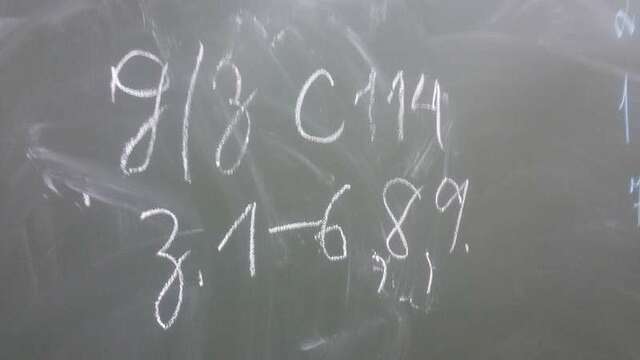 Д/з С 114
з. 1-6, 8, 9.